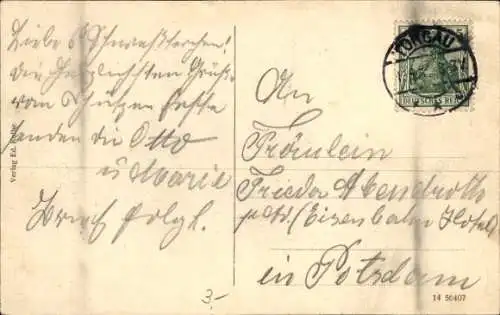 Liebe Schwesterchen!
Die herzlichsten Grüße
vom Schützenfeste
senden die Otto
u. Marie
Brief folgt.
An
Fräulein
Frieda Abendroth
(Eisenbahn Hotel)
in Potsdam
TORGAU
DEUTSCHES REICH
5
Verlag Ed.
14 50407
3.-